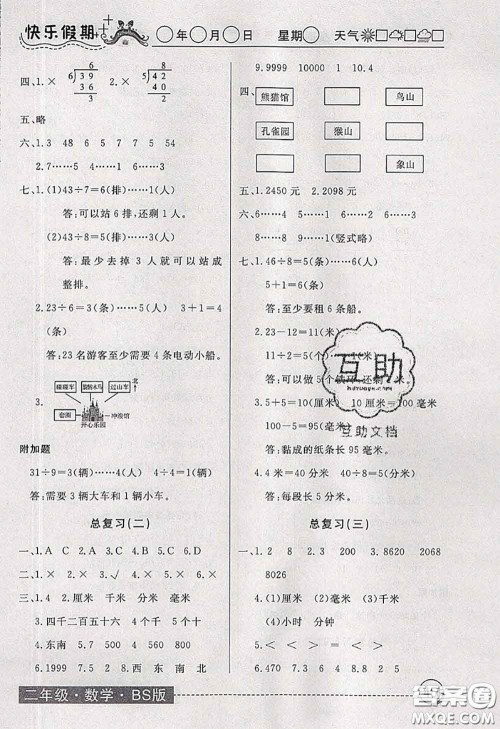 快乐假期
○年○月○日 星期○ 天气
四、1.× 2.×
6)39 36 3
5)42 40 2
五、略
六、1.3 48 6 5 7 7 5 54
2.7……5 3……4
七、1.(1)43÷7=6(排)……1(人)
答:可以站6排,还剩1人。
(2)43÷8=5(排)……3(人)
答:最少去掉3人就可以站成
整排。
2.23÷6=3(条)……5(人) 3+1=4
(条)
答:23名游客至少需要4条电动小船。
3.
碰碰车 旋转木马 过山车 北
套圈 冲浪馆
开心乐园
附加题
31÷9=3(辆)……4(人)
答:需要3辆大车和1辆小车。
总复习(二)
一、1.A C 2.A B
二、1.× 2.× 3.√ 4.×
三、1.4 2.厘米 千米 分米 毫米
3.四千二百五十六 4个千 5个十
4.东南 5.7 500 4 560 800
6.1999 7.5 西 东 南 北
9.9999 10000 1 10.4
四、
熊猫馆 鸟山
孔雀园 猴山
象山
五、1.2450元 2.2098元
六、6……4 5……1 6……5
8……8 9……1(竖式略)
七、1.46÷8=5(条)……6(人)
5+1=6(条)
答:至少要租6条船。
2.23-12=11(米)
11÷2=5(个)……1(米)
答:可以做5个铁环,还剩1米。
3.5+5=10(厘米) 10厘米=100毫米
100-5=95(毫米)
答:黏成的纸条长95毫米。
4.4米=40分米 40÷8=5(分米)
答:每段长5分米。
总复习(三)
一、1.2 8 2.3 200 3.8620 2068
8026
4.(1)厘米 (2)千米 (3)毫米
(4)小时 分钟
5.< = < > =
6.470 7.3 8.1
互助
互助文档
二年级·数学·BS版
答案圈